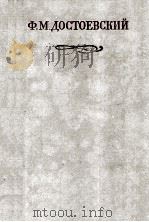 Ф. М. ДОСТОЕВСКИЙ
mtoou.info